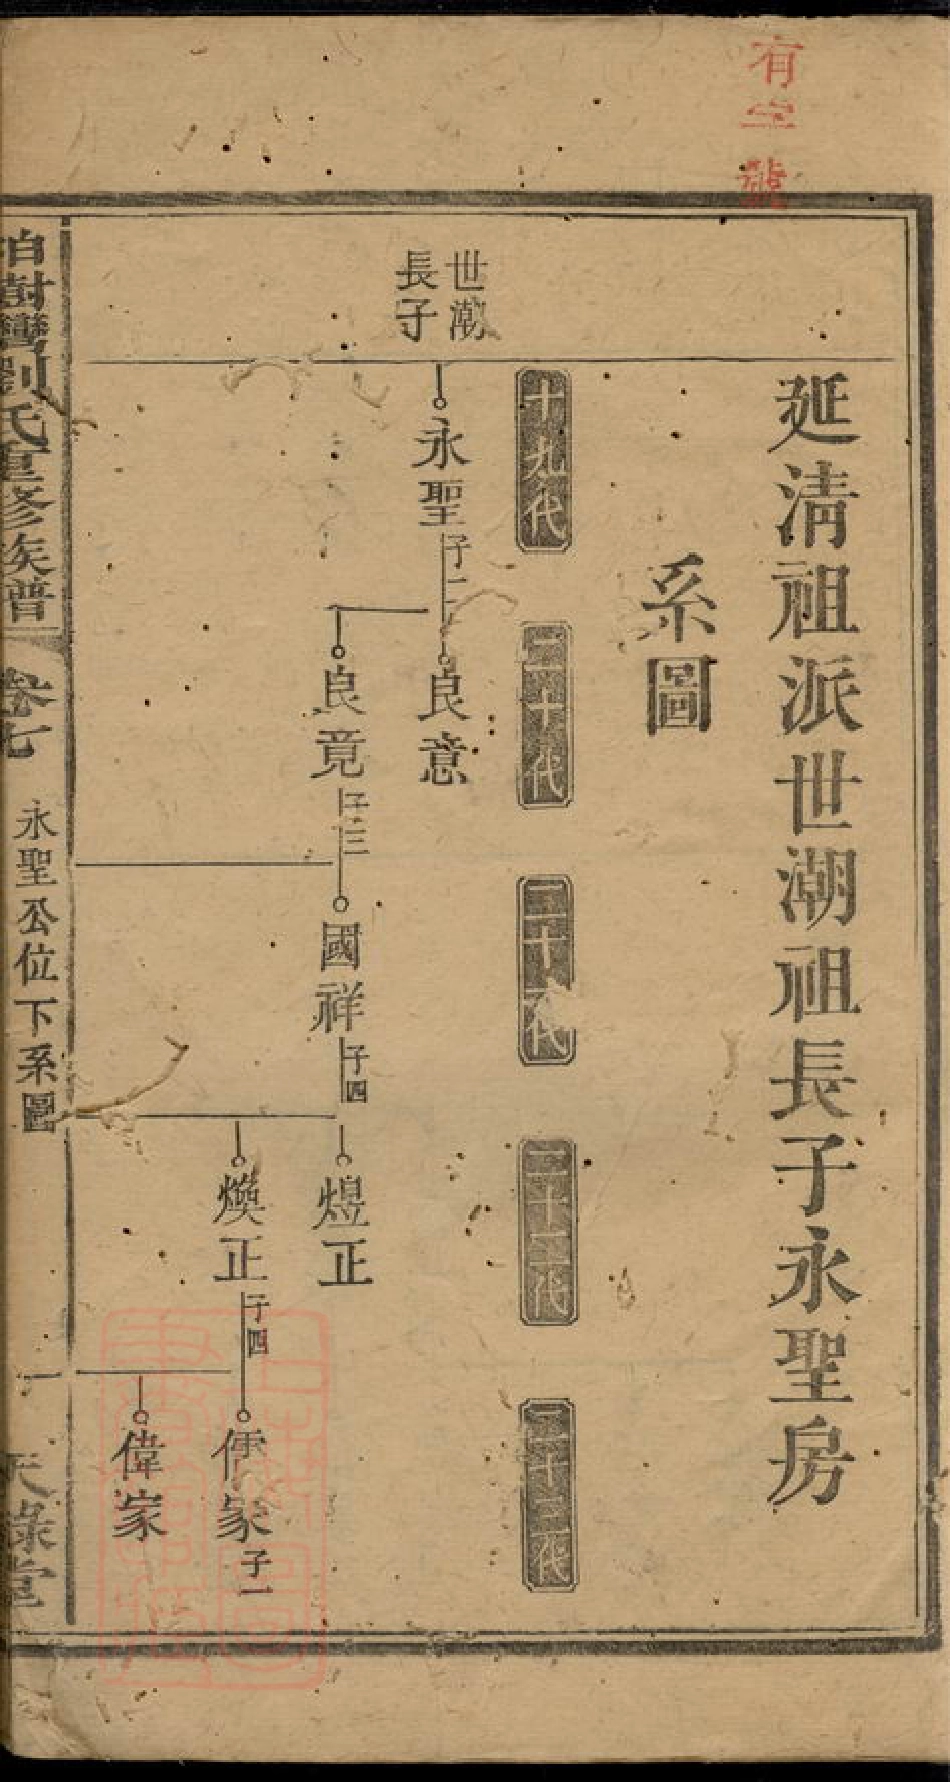 有字號
延淸祖派世潮祖長子永聖房
系圖
十九代
二十代
二十一代
二十二代
二十三代
世潮
長子
永聖
子二
良意
良竟
子三
國祥
子四
煜正
煥正
子四
儒家
子一
偉家
柏樹灣劉氏重修族譜
卷七
永聖公位下系圖
一
天祿堂